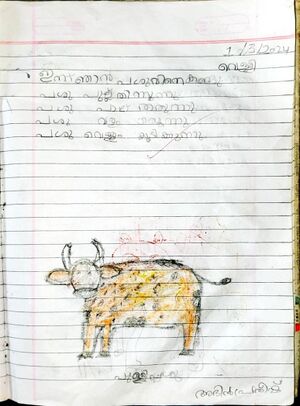 1/3/2024
വെള്ളി
ഇന്ന് ഞാൻ പശുവിനെ കണ്ടു
പശു പുല്ല് തിന്നുന്നു
പശു പാല് തരുന്നു
പശു വളം തരുന്നു
പശു വെള്ളം കുടിക്കുന്നു
പുള്ളിപശു